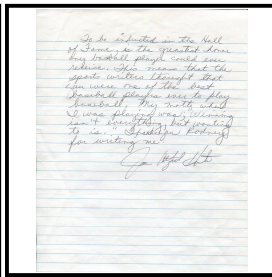 To be inducted in the Hall
of Fame, is the greatest honor
any baseball player could ever
receive. This means that the
sports writers thought that
you were one of the best
baseball players ever to play
baseball. My motto when
I was playing was, "Winning
isn't everything, but wanting
to is."
for writing me
Jim